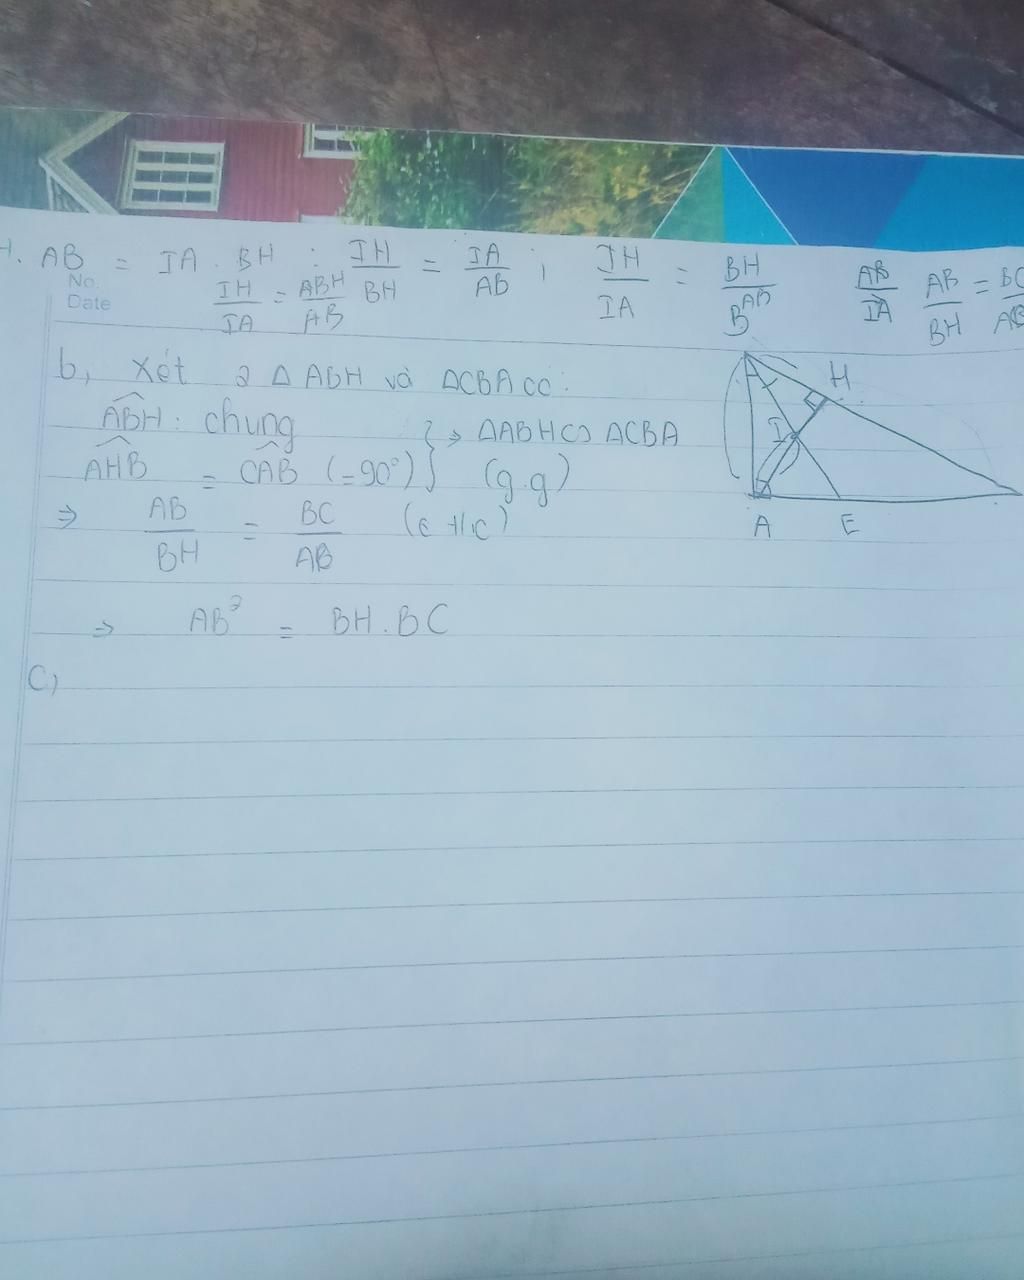 H. AB = IA . BH : IH/BH = IA/AB ; IH/IA = BH/AB AB/IA AB/BH = BC/AB
No.
Date
IH/IA = ABH/AB
b, Xét 2 Δ ABH và ΔCBA có:
ABH : chung
AHB = CAB (=90°) } => ΔABH ∽ ΔCBA (g.g)
=> AB/BH = BC/AB
=> AB² = BH.BC
C)
B
H
I
A E